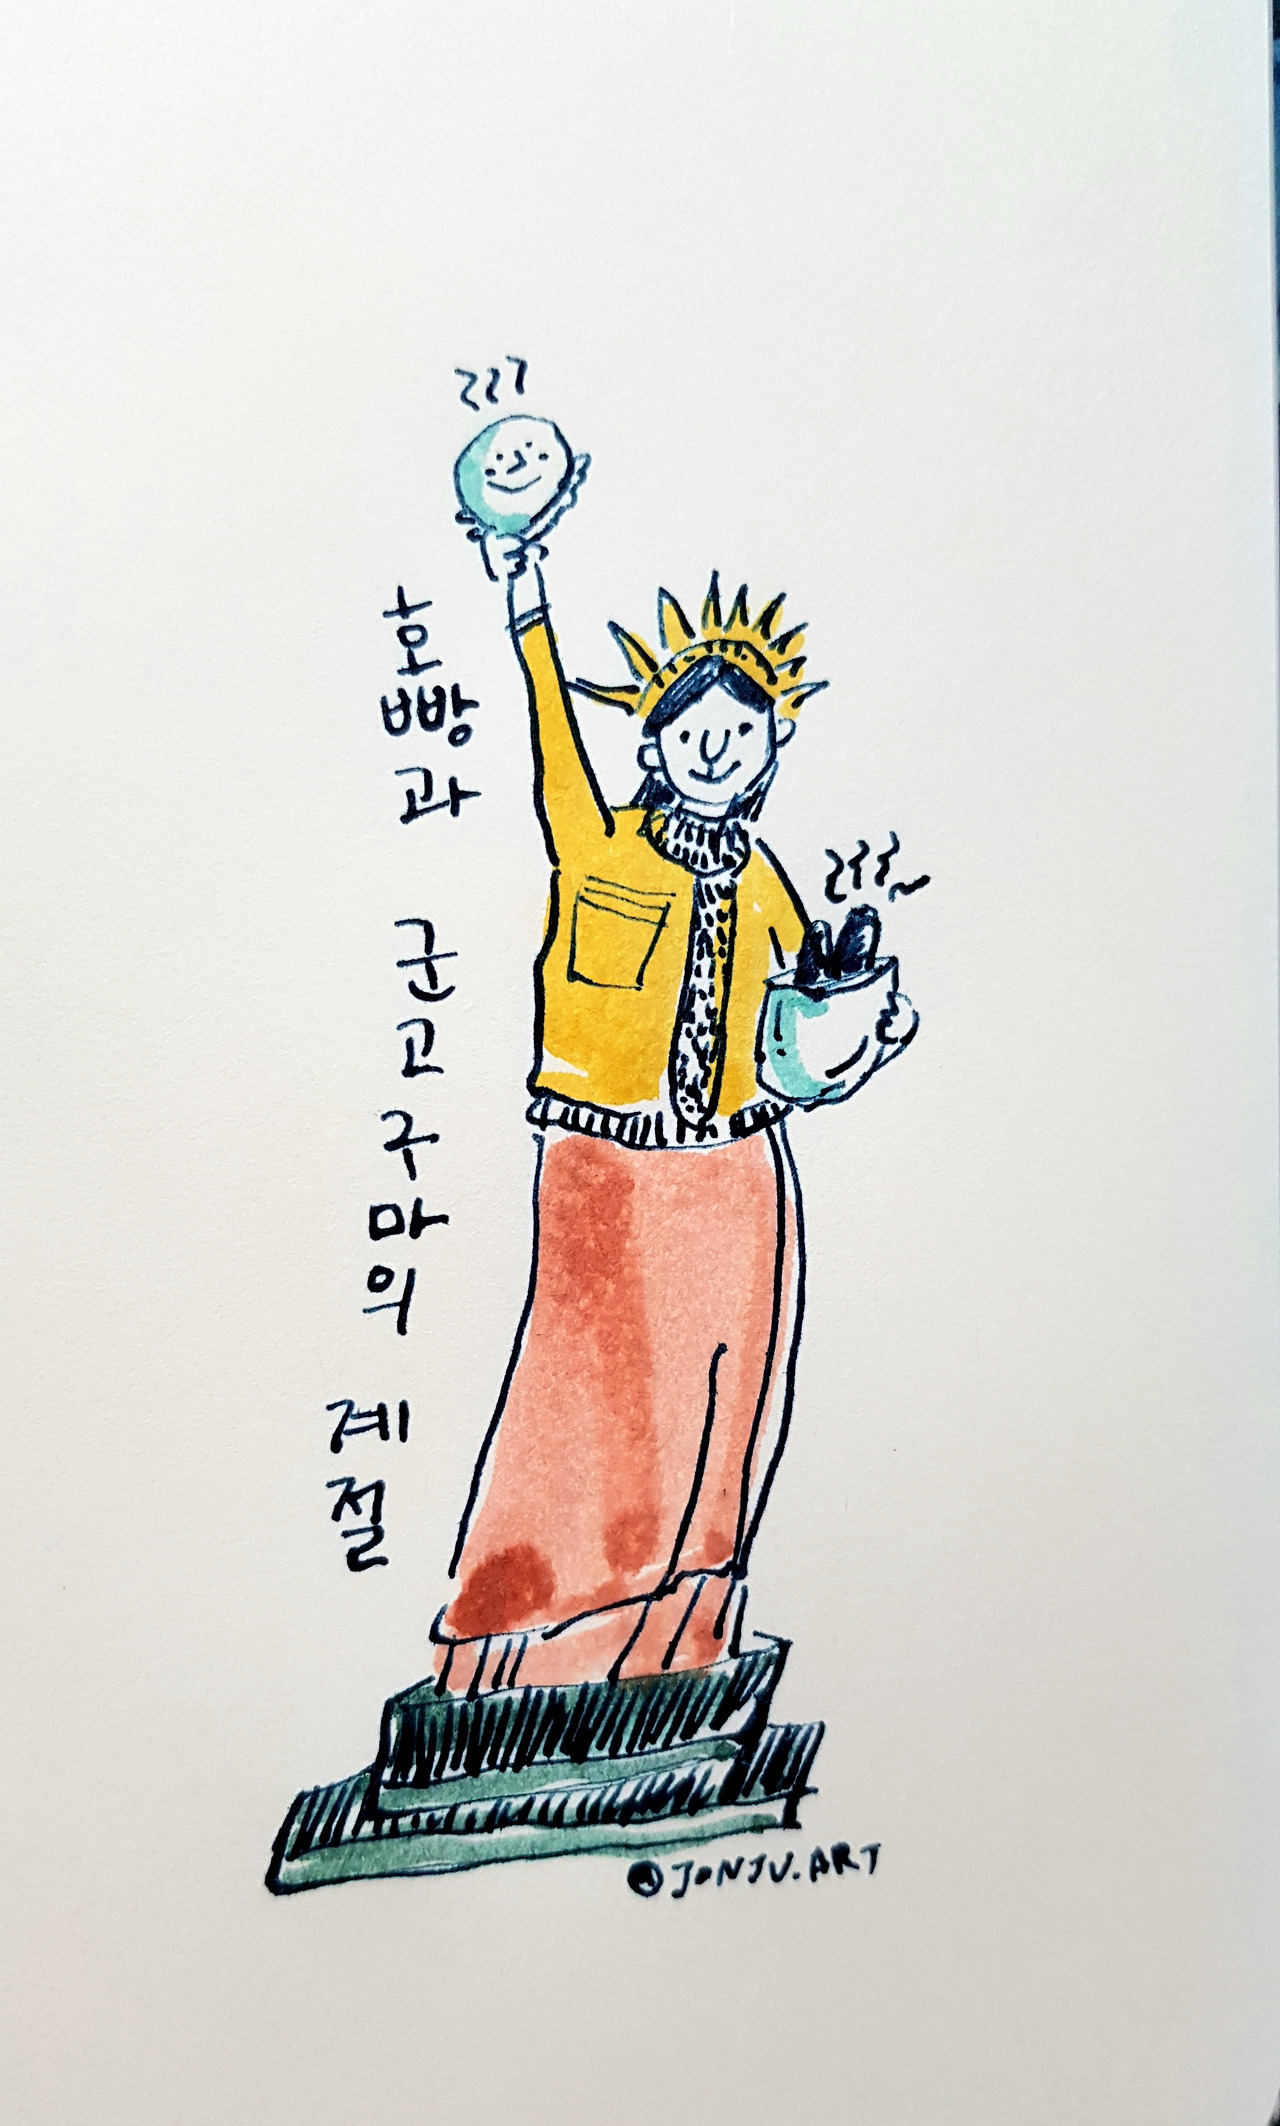 호빵과 군고구마의 계절
@JONJU.ART